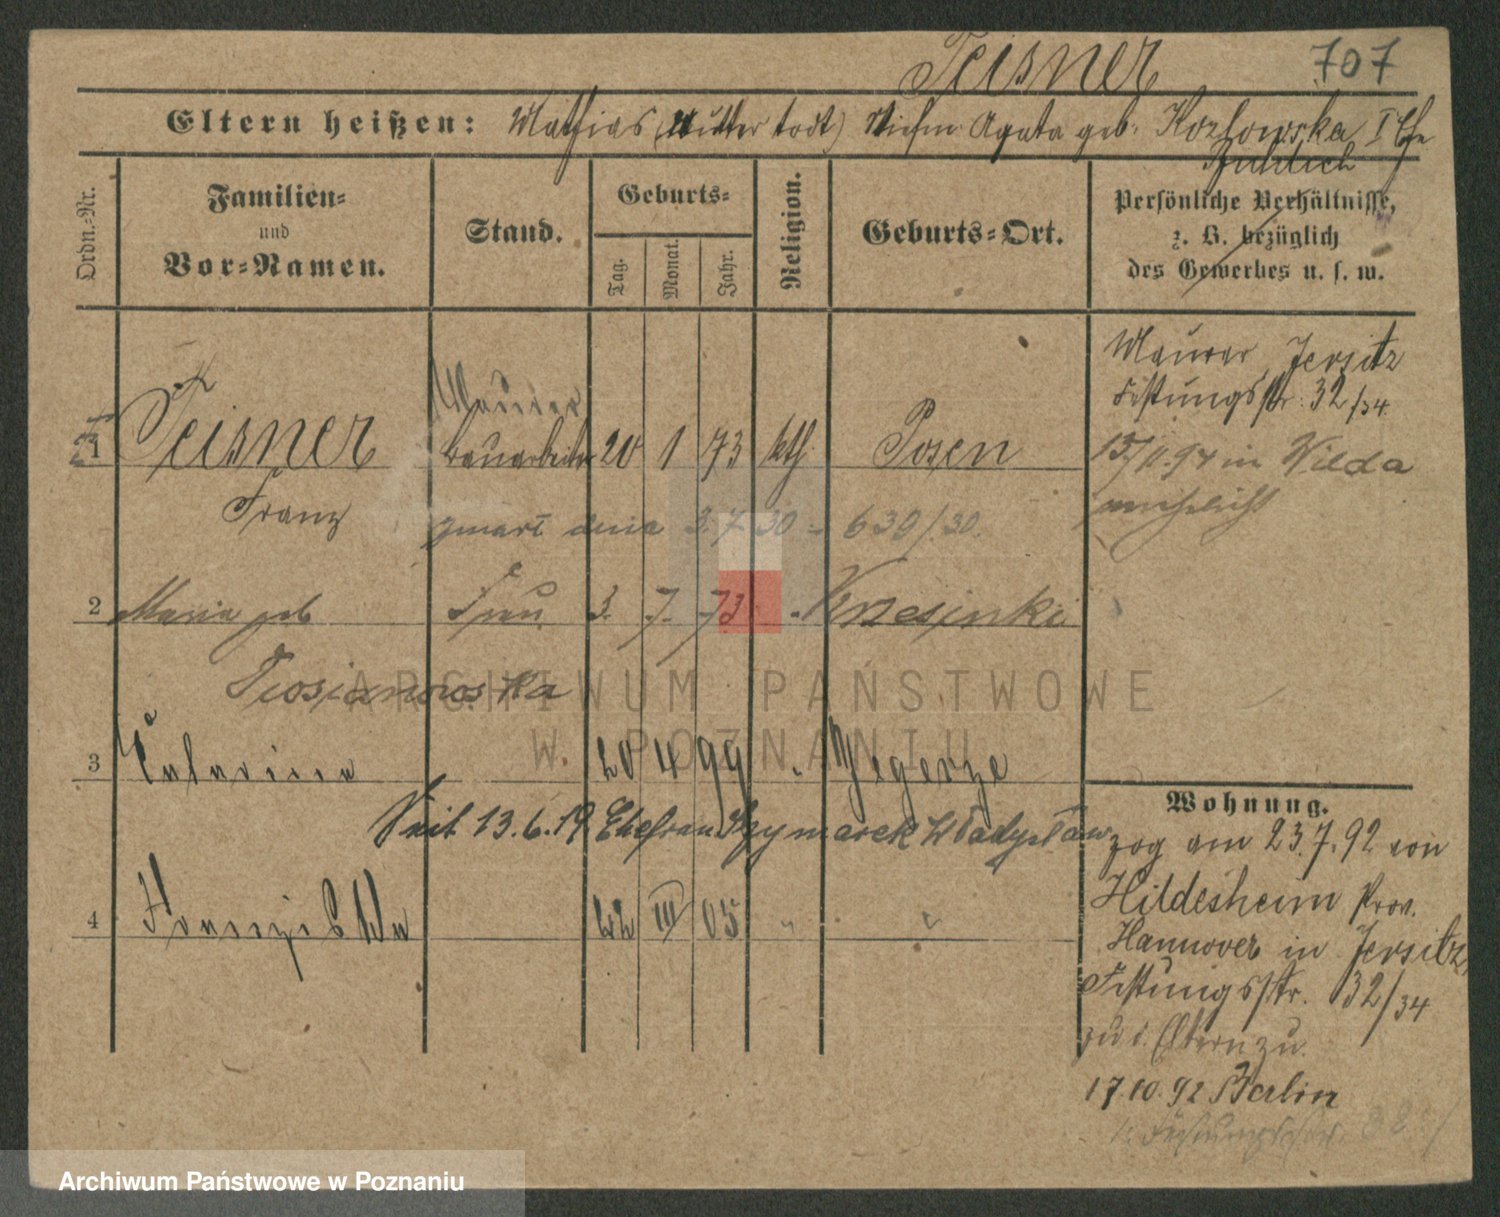 Teisner 707
Eltern heißen: Mathias (Mutter todt) Agata geb. Kozlowska I Ehe
Ordn.-Nr.
Familien-
und
Vor-Namen.
Stand.
Geburts-
Tag.
Monat.
Jahr.
Religion.
Geburts-Ort.
Persönliche Verhältnisse,
z. B. bezüglich
des Gewerbes u. s. w.
Maurer, Jersitz
Festungsstr. 32/34.
Maurer
1 Teisner Bauarbeiter 20 1 73 kth. Posen
in Wilda
Franz
zmarł dnia 3.7.30 - 630/30.
2 Maria geb Frau 3. 7. 73
3 20 4 99
Wohnung.
Seit 13.6.19 Ehefrau Szymarek Władysław
zog am 23.7.92 von
Hildesheim Prov.
4 22 III 05 "
Hannover in Jersitz,
Festungsstr. 32/34
zu d. Eltern zu.
17.10.92 Berlin
ARCHIWUM PAŃSTWOWE
W POZNANIU
Archiwum Państwowe w Poznaniu